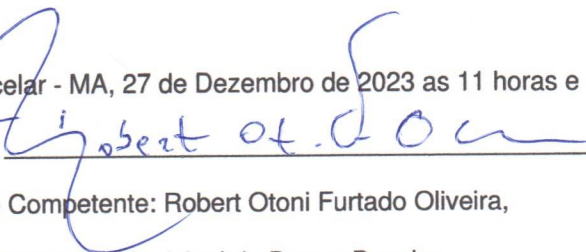 celar - MA, 27 de Dezembro de 2023 as 11 horas e
Robert Ot.
Competente: Robert Otoni Furtado Oliveira,